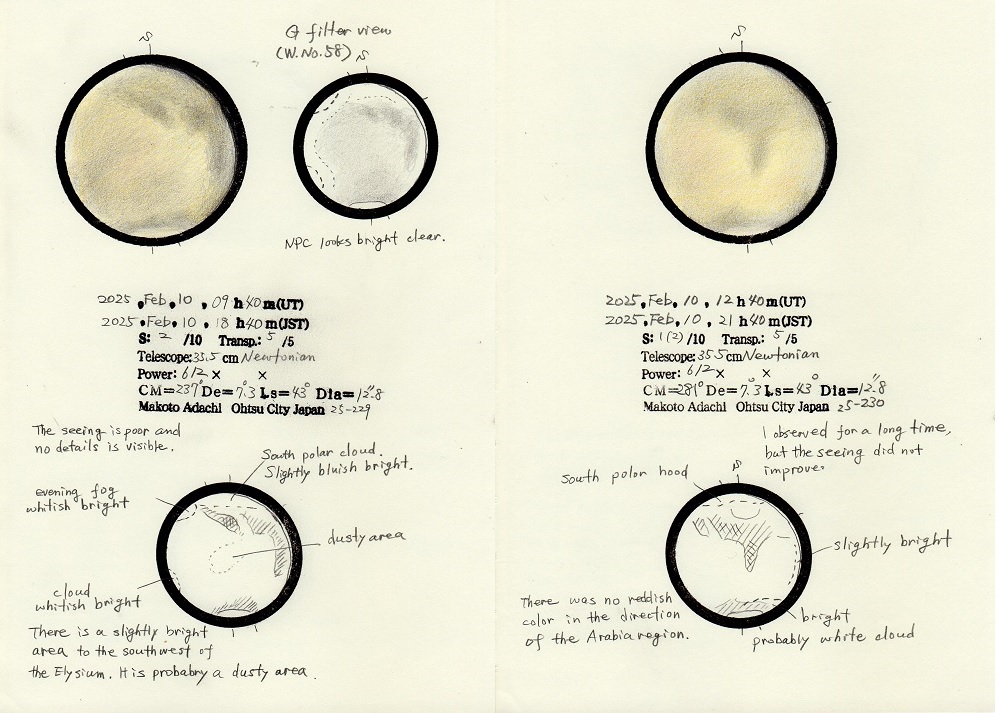 S
G filter view
(W.No.58)
S
NPC looks bright clear.
2025.Feb.10, 09h40m(UT)
2025.Feb.10, 18h40m(JST)
S: 2 /10 Transp.: 5 /5
Telescope:35.5cm Newtonian
Power: 612× ×
CM=237° De=7.3 Ls=43° Dia=12.″8
Makoto Adachi Ohtsu City Japan 25-229
The seeing is poor and
no details is visible.
South polar cloud.
Slightly bluish bright.
evening fog
whitish bright
dusty area
cloud
whitish bright
There is a slightly bright
area to the southwest of
the Elysium. It is probabry a dusty area.
S
2025.Feb.10, 12h40m(UT)
2025.Feb.10, 21h40m(JST)
S: 1(2) /10 Transp.: 5 /5
Telescope:355cm Newtonian
Power: 612× ×
CM=281° De=7.°3 Ls=43° Dia=12.″8
Makoto Adachi Ohtsu City Japan 25-230
I observed for a long time,
but the seeing did not
improve.
South polar hood
S
slightly bright
There was no reddish
color in the direction
of the Arabia region.
bright
probably white cloud